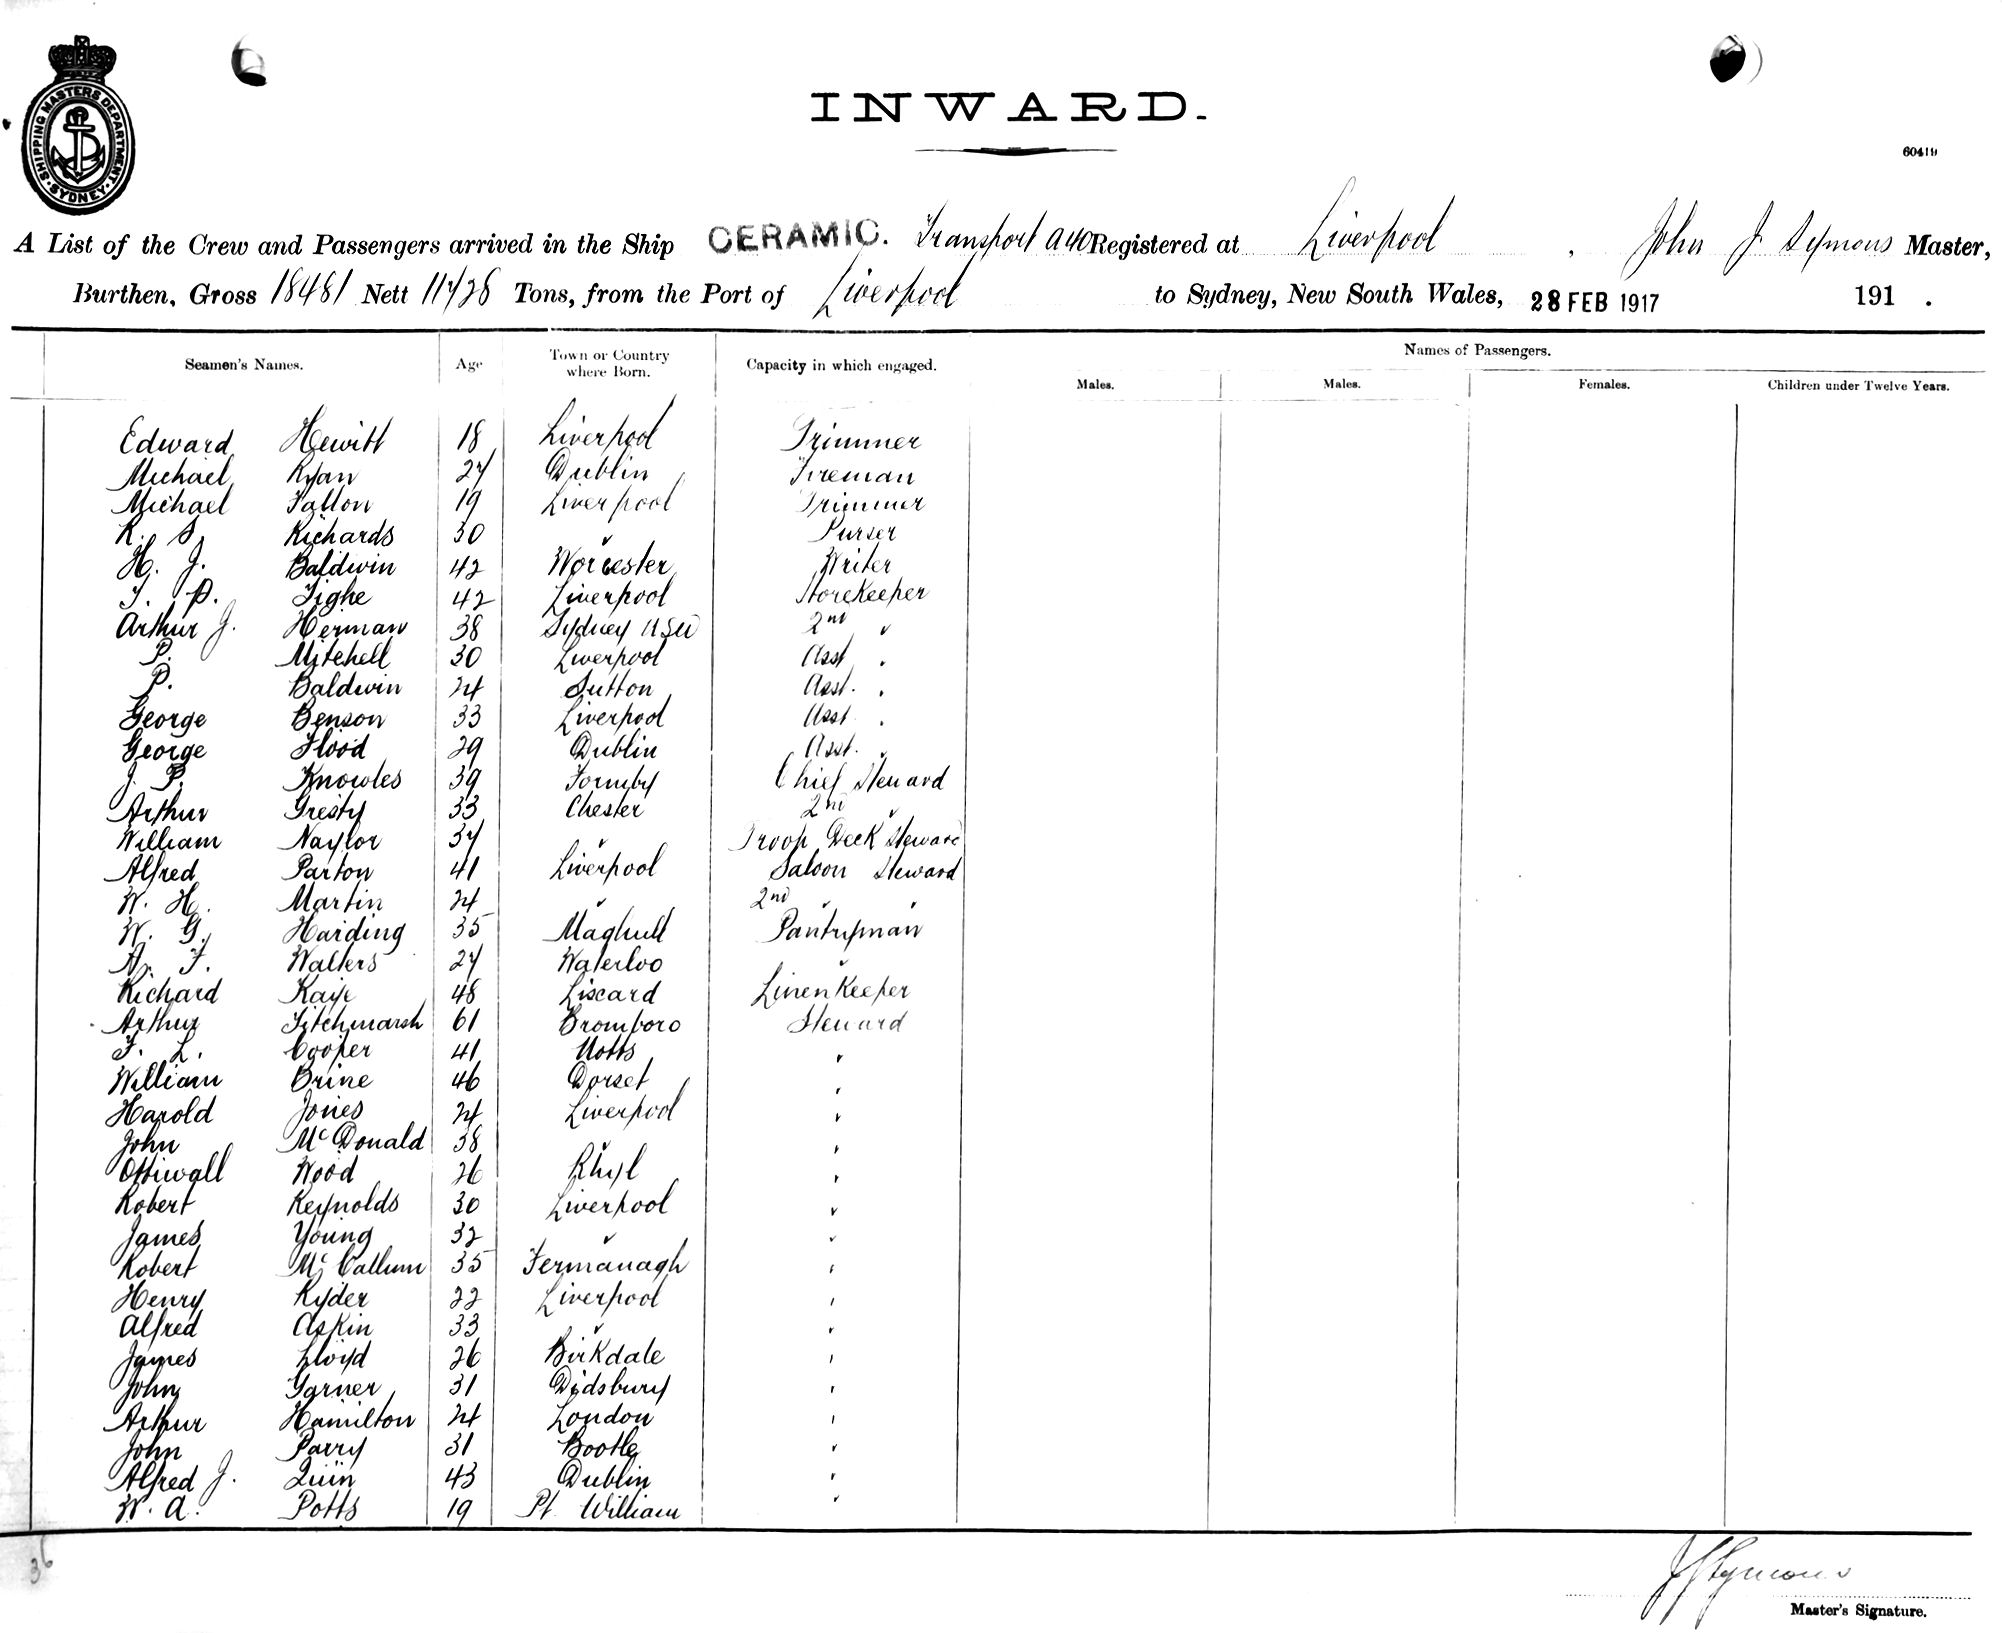 SHIPPING MASTERS DEPARTMENT · SYDNEY ·
INWARD.
60419
A List of the Crew and Passengers arrived in the Ship CERAMIC. Transport A40 Registered at Liverpool , John J. Symons Master,
Burthen, Gross 18481 Nett 11728 Tons, from the Port of Liverpool to Sydney, New South Wales, 28 FEB 1917 191 .
Seamen's Names. Age Town or Country where Born. Capacity in which engaged. Names of Passengers.
Males. Males. Females. Children under Twelve Years.
Edward Hewitt 18 Liverpool Trimmer
Michael Ryan 27 Dublin Fireman
Michael Fallon 19 Liverpool Trimmer
R. S. Richards 30 " Purser
H. J. Baldwin 42 Worcester Writer
T. P. Tighe 42 Liverpool Storekeeper
Arthur J. Herman 38 Sydney NSW 2nd "
P. Mitchell 30 Liverpool Asst "
P. Baldwin 24 Sutton Asst. "
George Benson 33 Liverpool Asst "
George Flood 29 Dublin Asst. "
J. P. Knowles 39 Formby Chief Steward
Arthur Gresty 33 Chester 2nd "
William Naylor 37 " Troop Deck Steward
Alfred Parton 41 Liverpool Saloon Steward
W. H. Martin 24 " 2nd " "
W. G. Harding 35 Maghull Pantryman
A. F. Walters 27 Waterloo "
Richard Kaye 48 Liscard Linen Keeper
Arthur Titchmarsh 61 Bromboro Steward
F. L. Cooper 41 Notts "
William Brine 46 Dorset "
Harold Jones 24 Liverpool "
John McDonald 38 " "
Ottiwall Wood 26 Rhyl "
Robert Reynolds 30 Liverpool "
James Young 32 " "
Robert McCallum 35 Fermanagh "
Henry Ryder 22 Liverpool "
Alfred Askin 33 " "
James Lloyd 26 Birkdale "
John Garner 31 Didsbury "
Arthur Hamilton 24 London "
John Parry 31 Bootle "
Alfred J. Quin 43 Dublin "
W. A. Potts 19 Pt William "
36
J J Symons
Master's Signature.